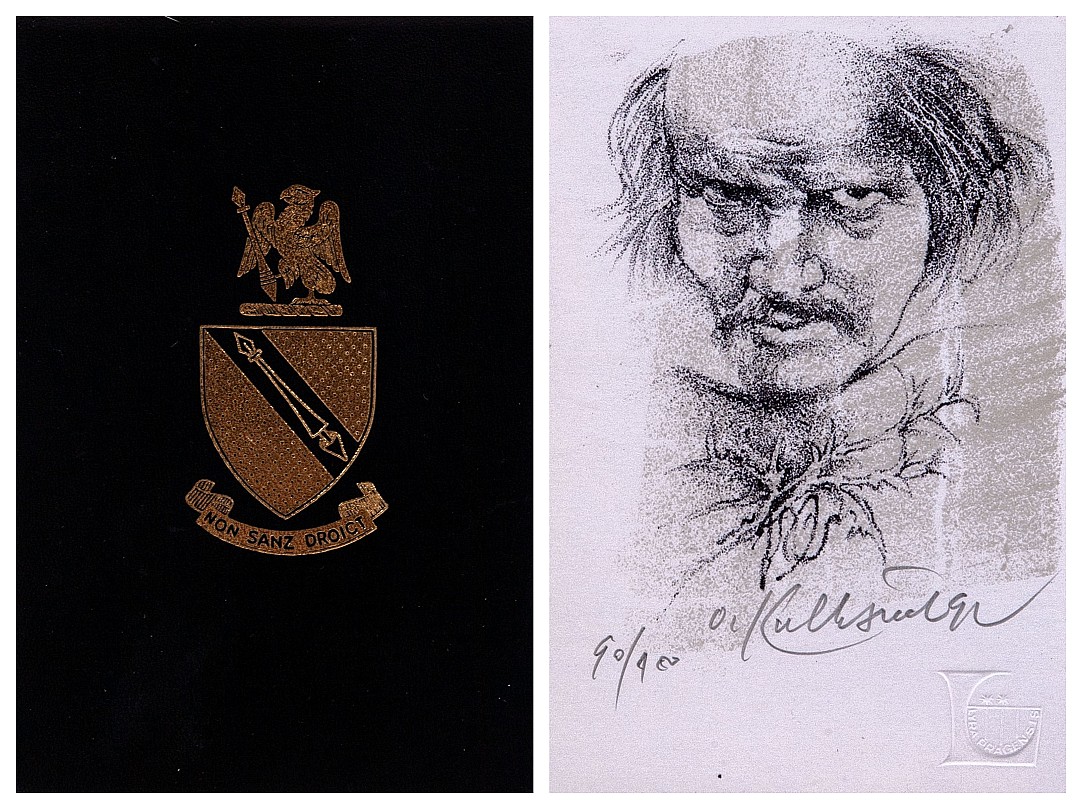 NON SANZ DROICT
O. Kulhánek
90/
LYRA PRAGENSIS